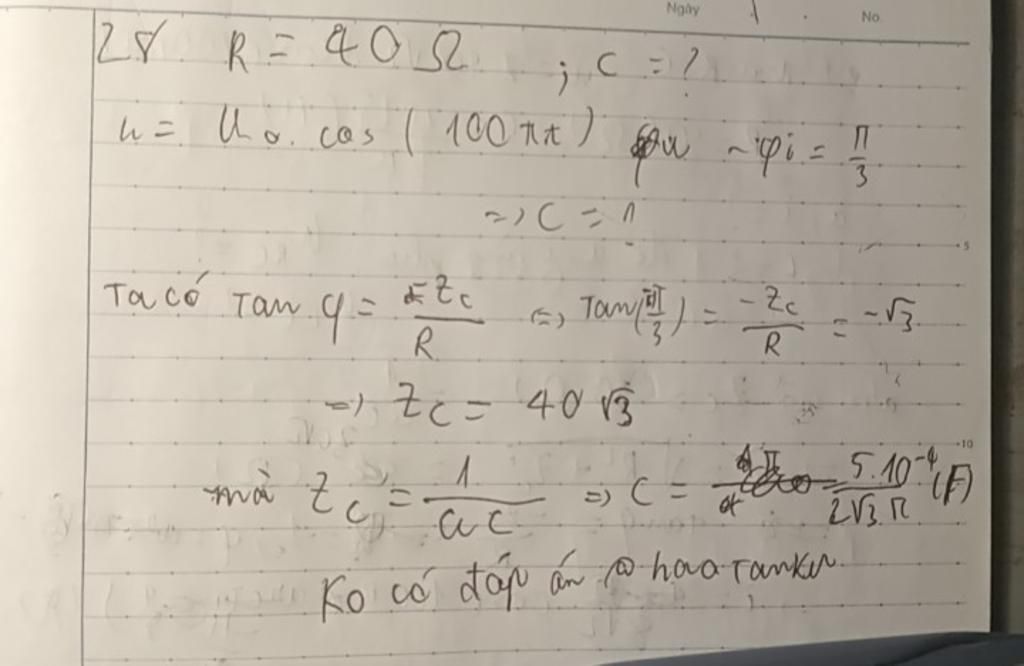 Ngày No.
28 R = 40 Ω ; C = ?
u = U₀. cos ( 100πt ) φu - φi = π/3
=> C = ?
5
Ta có Tan φ = -Zc/R <=> Tan(π/3) = -Zc/R = -√3
=> Zc = 40√3
10
mà Zc = 1/ωC => C = 5.10⁻⁴/2√3.π (F)
Ko có đáp án @haotanku